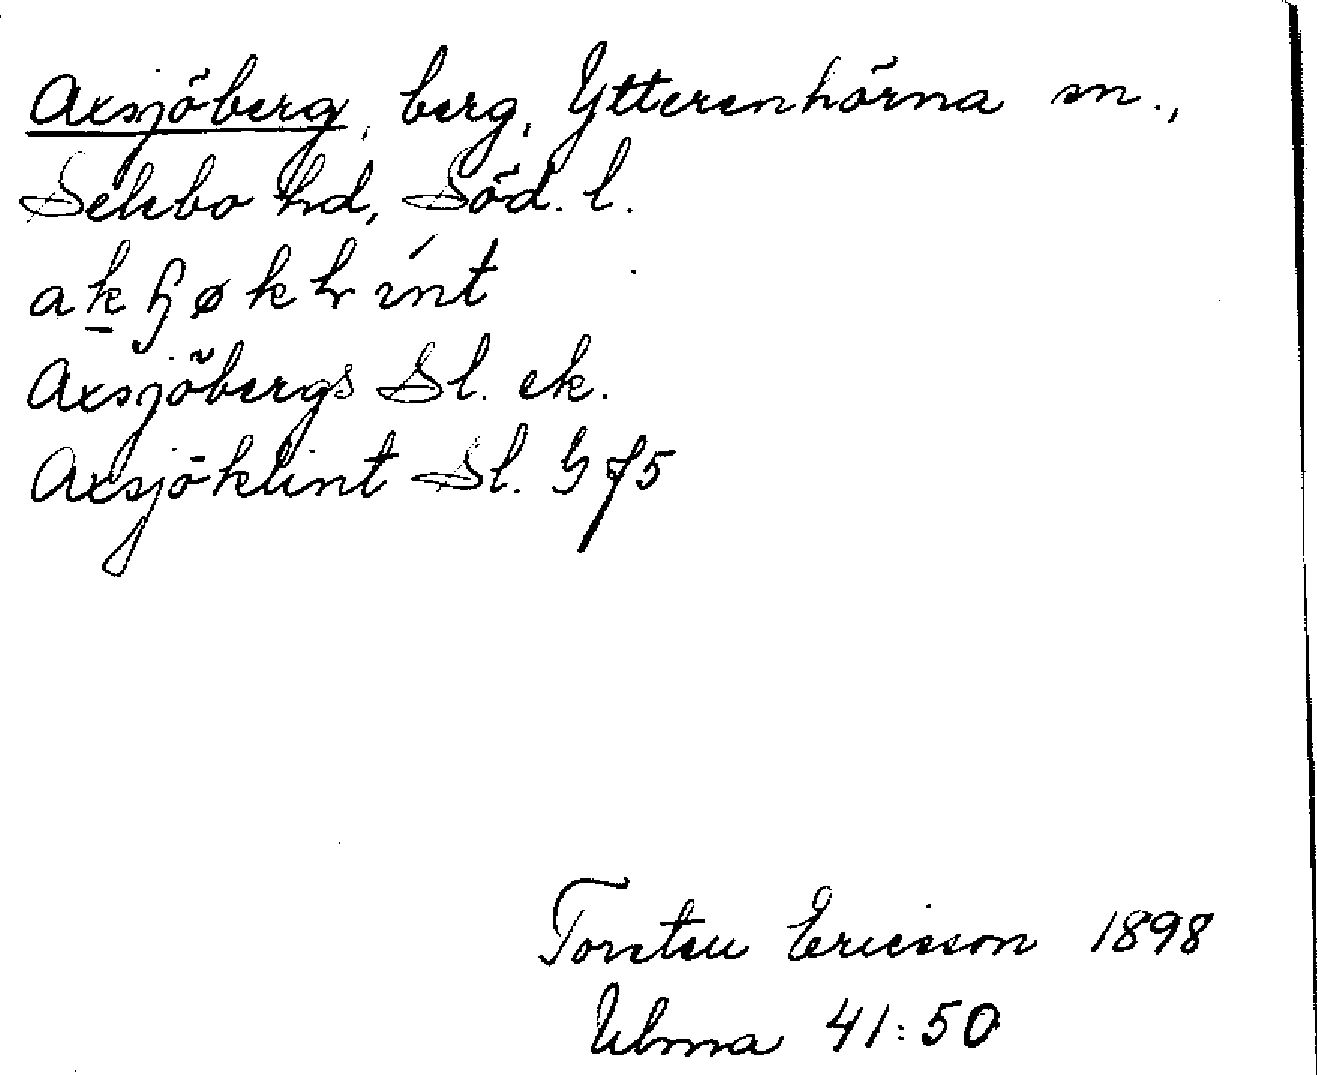 Axsjöberg, berg, Ytterenhörna sn.,
Selebo hd, Söd. l.
Axsjöbergs Sl. ek.
Axsjöklint Sl. G f5
Torsten Ericsson 1898
Ulma 41:50